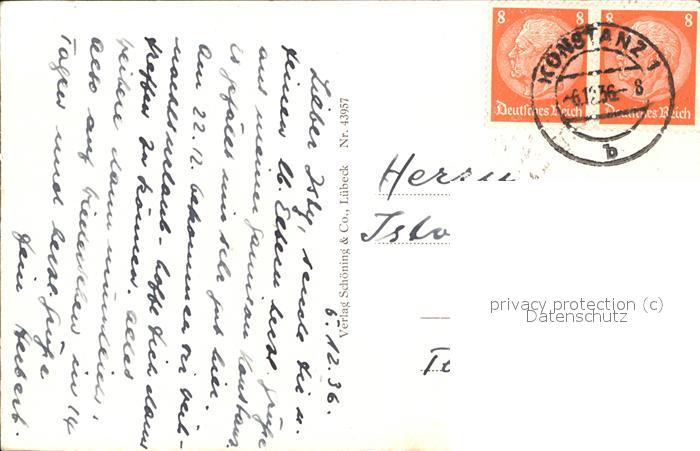 6.12.36.
Lieber Isby, sende Dir u.
Deinen lb. Eltern herzl. Grüße
aus meiner Garnison Konstanz.
Es gefällt mir sehr gut hier.
Am 22.12. bekommen wir Weih-
nachtsurlaub - hoffe Dich dann
treffen zu können. Alles
weitere dann mündlich,
also auf Wiedersehen in 14
Tagen und herzl. Grüße
Dein Herbert.
Verlag Schöning & Co., Lübeck Nr. 43957
8 8
8 8
Deutsches Reich
Deutsches Reich
KONSTANZ 1
-6.12.36- 8
b
Herrn
privacy protection (c)
Datenschutz